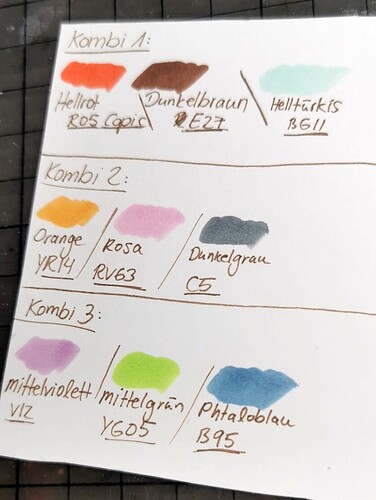 Kombi 1:
Hellrot / Dunkelbraun \ Helltürkis
R05 Copic \ E27 BG11
Kombi 2:
Orange / Rosa / Dunkelgrau
YR14 RV63 C5
Kombi 3:
mittelviolett / mittelgrün / Phtaloblau
V12 YG05 B95